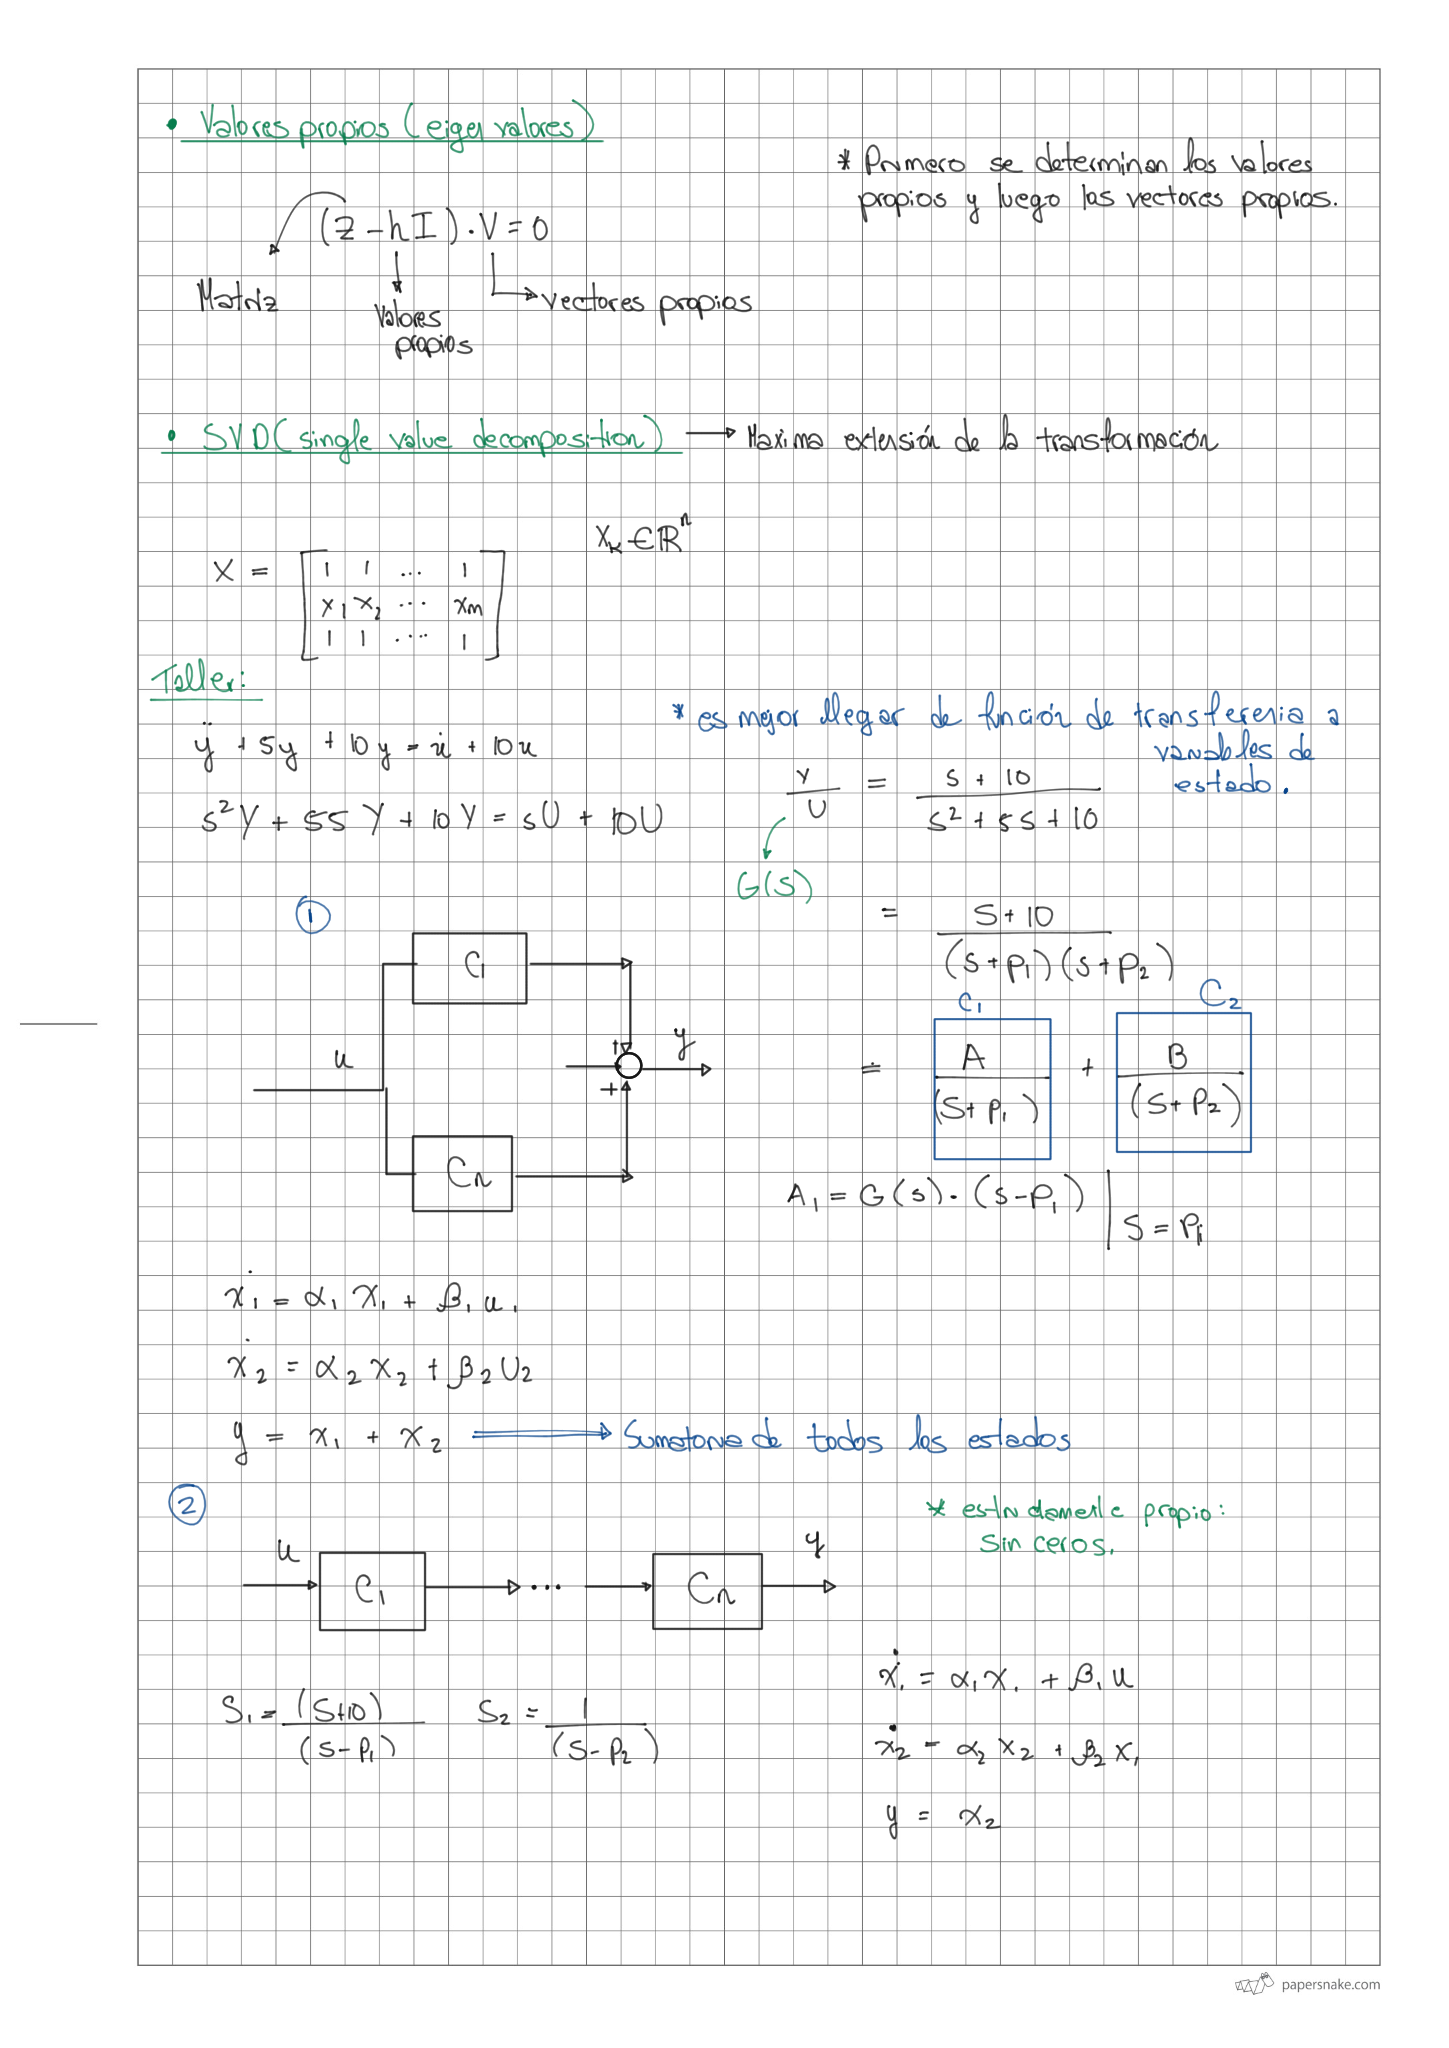 • Valores propios (eigen valores)
* Primero se determinan los valores
propios y luego los vectores propios.
(Z - hI) · V = 0
Matriz
Valores
propios
vectores propios
• SVD (single value decomposition) → Maxima extensión de la transformación
X_k ∈ ℝ^n
X = [ 1 1 ... 1
x_1 x_2 ... x_m
1 1 .... 1 ]
Taller:
* es mejor llegar de función de transferencia a
variables de
estado.
ÿ + 5y + 10y = u̇ + 10u
s²Y + 5S Y + 10Y = sU + 10U
Y / U = (s + 10) / (s² + 5s + 10)
G(s)
= (S + 10) / ((s + p_1)(s + p_2))
①
C_1
u
+
+
y
C_n
C_1
C_2
= A / (S + p_1) + B / (S + P_2)
A_1 = G(s) · (s - p_1) | S = P_1
ẋ_1 = α_1 x_1 + β_1 u_1
ẋ_2 = α_2 x_2 + β_2 U_2
y = x_1 + x_2 ⟹ Sumatoria de todos los estados
②
* estrictamente propio:
Sin ceros.
u
C_1
...
C_n
y
S_1 = (S+10) / (S - P_1)
S_2 = 1 / (S - P_2)
ẋ_1 = α_1 x_1 + β_1 u
ẋ_2 = α_2 x_2 + β_2 x_1
y = x_2
papersnake.com